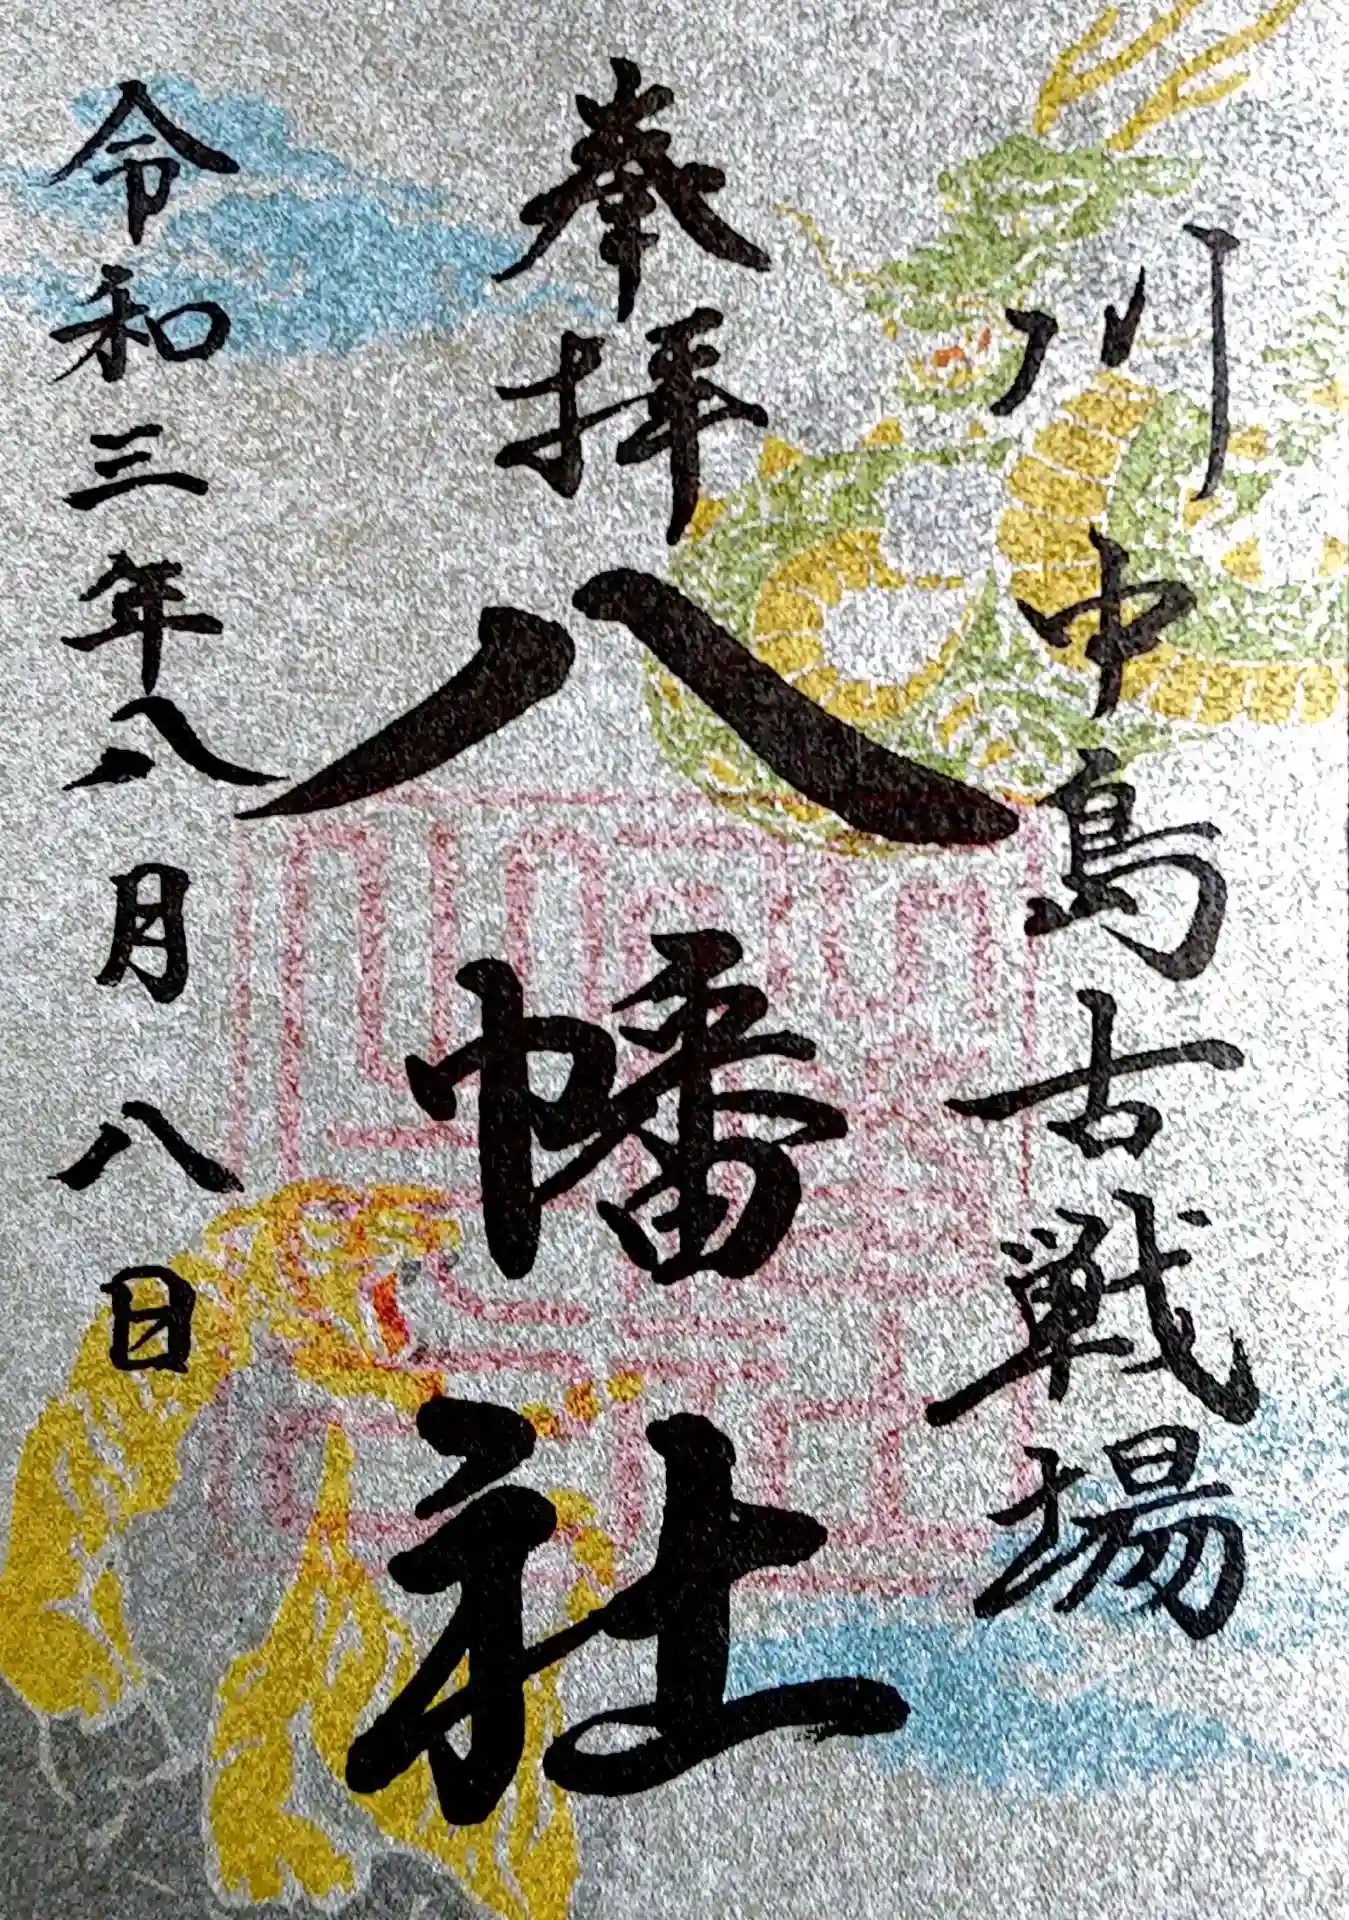 川中島古戦場
奉拝
八幡社
令和三年八月八日